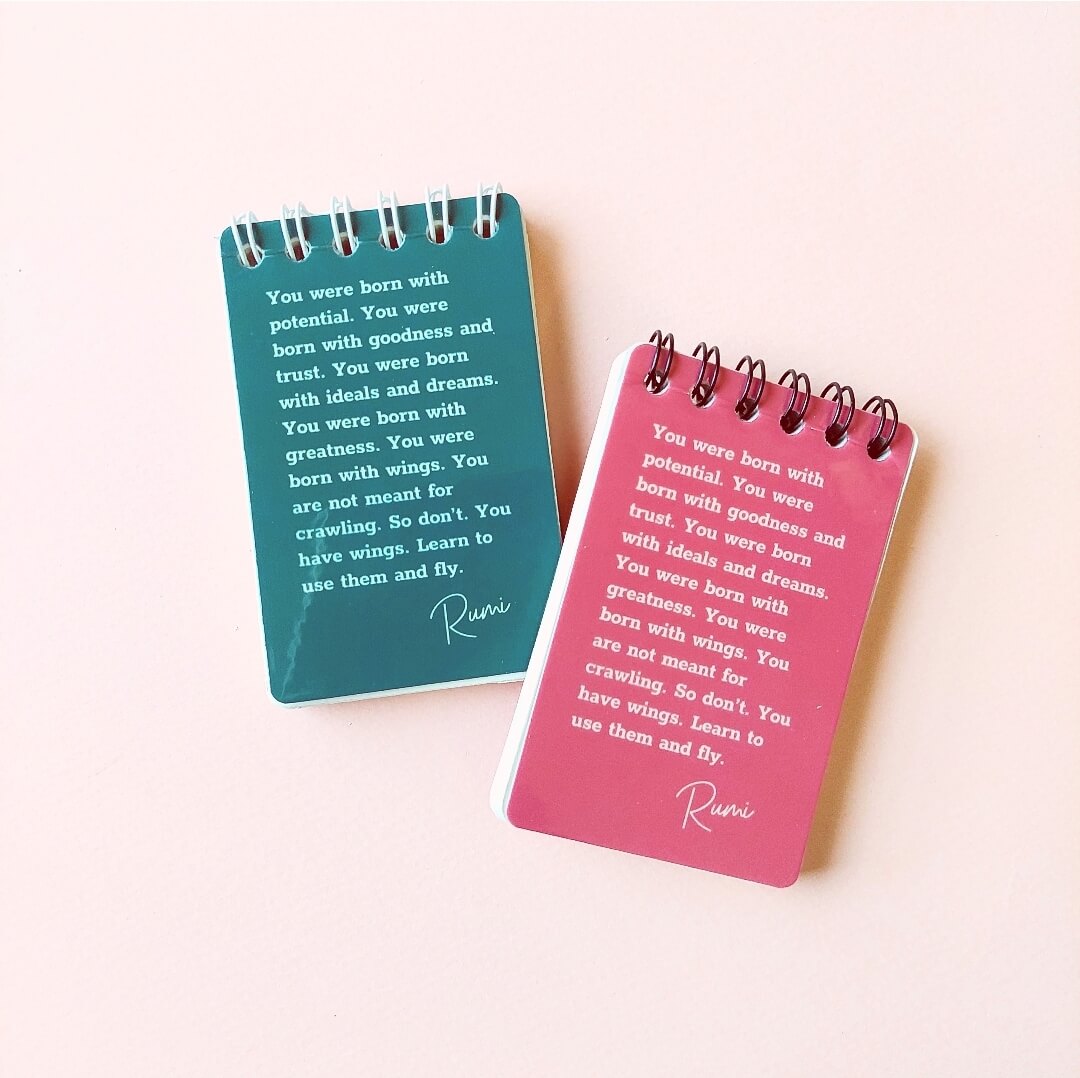 You were born with
potential. You were
born with goodness and
trust. You were born
with ideals and dreams.
You were born with
greatness. You were
born with wings. You
are not meant for
crawling. So don't. You
have wings. Learn to
use them and fly.
Rumi
You were born with
potential. You were
born with goodness and
trust. You were born
with ideals and dreams.
You were born with
greatness. You were
born with wings. You
are not meant for
crawling. So don't. You
have wings. Learn to
use them and fly.
Rumi